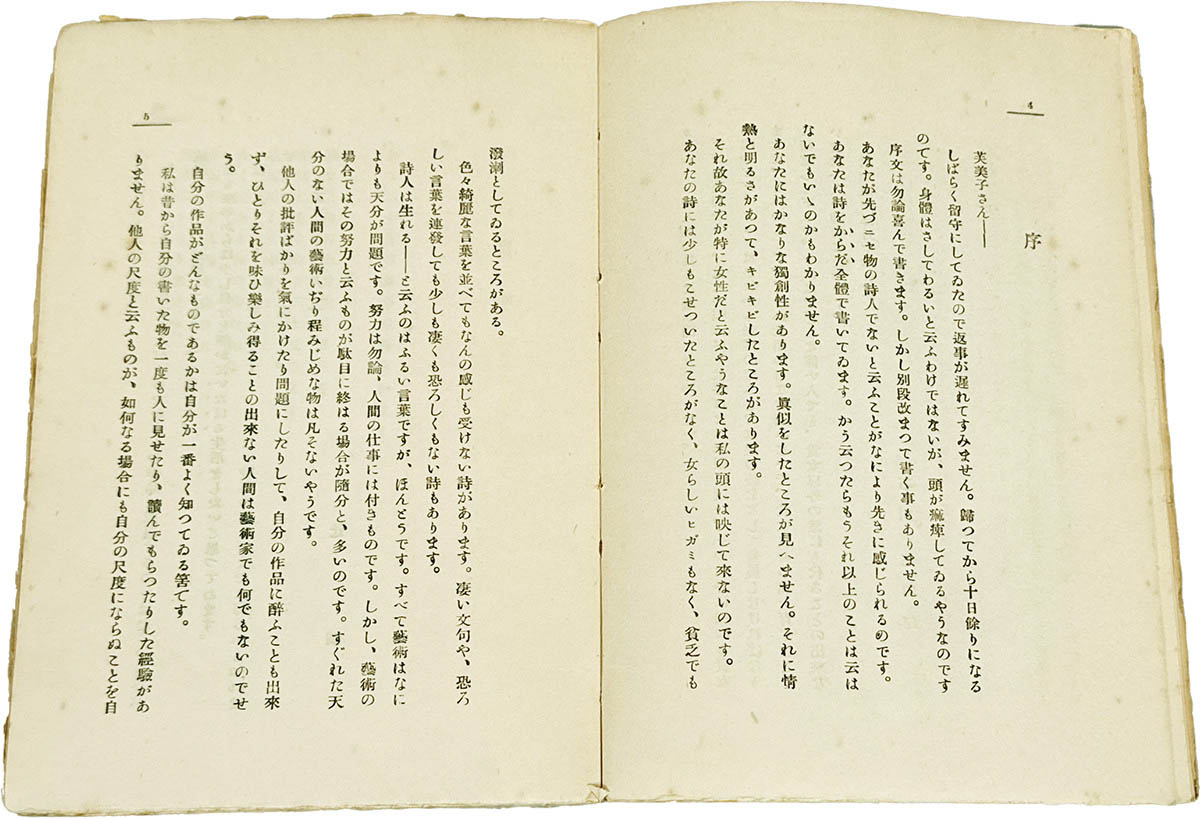 4
序
芙美子さん――
しばらく留守にしてゐたので返事が遅れてすみません。歸つてから十日餘りになる
のてす。身體はさしてわるいと云ふわけではないが、頭が痲痺してゐるやうなのです
序文は勿論喜んで書きます。しかし別段改まつて書く事もありません。
あなたが先づニセ物の詩人でないと云ふことがなにより先きに感じられるのです。
あなたは詩をからだ全體で書いてゐます。かう云つたらもうそれ以上のことは云は
ないでもいゝのかもわかりません。
あなたにはかなりな獨創性があります。眞似をしたところが見へません。それに情
熱と明るさがあつて、キビキビしたところがあります。
それ故あなたが特に女性だと云ふやうなことは私の頭には映じて來ないのです。
あなたの詩には少しもこせついたところがなく、女らしいヒガミもなく、貧乏でも
5
潑溂としてゐるところがある。
色々綺麗な言葉を並べてもなんの感じも受けない詩があります。凄い文句や、恐ろ
しい言葉を連發しても少しも凄くも恐ろしくもない詩もあります。
詩人は生れる――と云ふのはふるい言葉ですが、ほんとうです。すべて藝術はなに
よりも天分が問題です。努力は勿論、人間の仕事には付きものです。しかし、藝術の
場合ではその努力と云ふものが駄目に終はる場合が隨分と、多いのです。すぐれた天
分のない人間の藝術いぢり程みじめな物は凡そないやうです。
他人の批評ばかりを氣にかけたり問題にしたりして、自分の作品に醉ふことも出來
ず、ひとりそれを味ひ樂しみ得ることの出來ない人間は藝術家でも何でもないのでせ
う。
自分の作品がどんなものであるかは自分が一番よく知つてゐる筈です。
私は昔から自分の書いた物を一度も人に見せたり、讀んでもらつたりした經驗があ
りません。他人の尺度と云ふものが、如何なる場合にも自分の尺度にならぬことを自